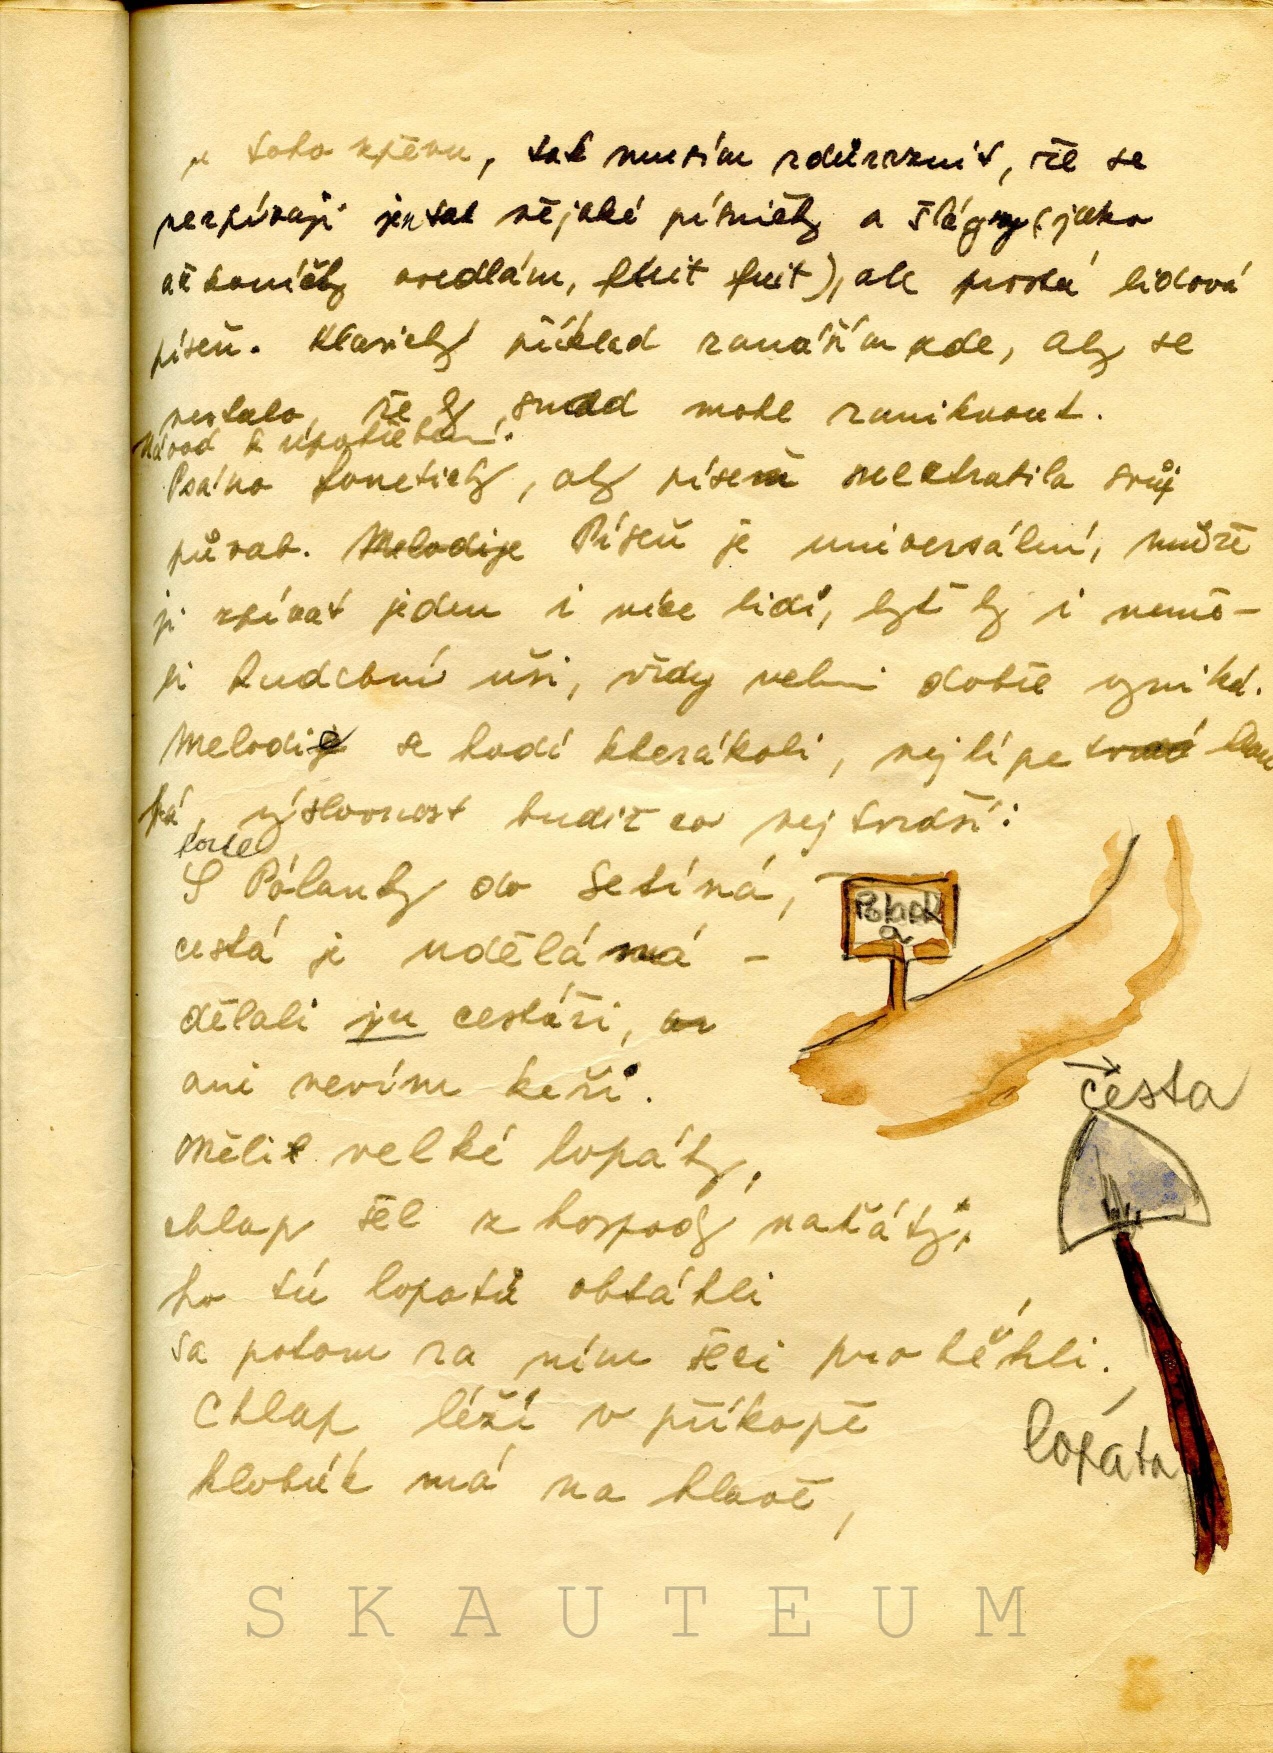 u toho zpěvu, tak musím zdůraznit, že se
nezpívají jen tak nějaké písničky a šlágry (jako
až koníčky osedlám, fuit fuit), ale prostá lidová
píseň. Klasický příklad zanáším zde, aby se
nestalo, že by snad mohl zaniknout.
Návod k upotřebení.
Psáno foneticky, aby píseň neztratila svůj
půvab. Melodije Píseň je universální, může
ji zpívat jeden i více lidí, byť by i nemě-
li hudební uši, vždy velmi dobře vyniká.
Melodie se hodí kterákoli, nejlépe tvrdá
výslovnost budiž co nejtvrdší:
forte
S Pólanky do Setíná,
cestá je udělámá -
dělali ju cestáři,
ani nevím keří.
Měli velké lopáty,
chlap šél z hospody naťátý,
ho tú lopatú obtáhli
sa potom za ním šeci proběhli.
Chlap léží v příkopě
klobúk má na hlavě,
Polank
a
→
cesta
lopáta
SKAUTEUM